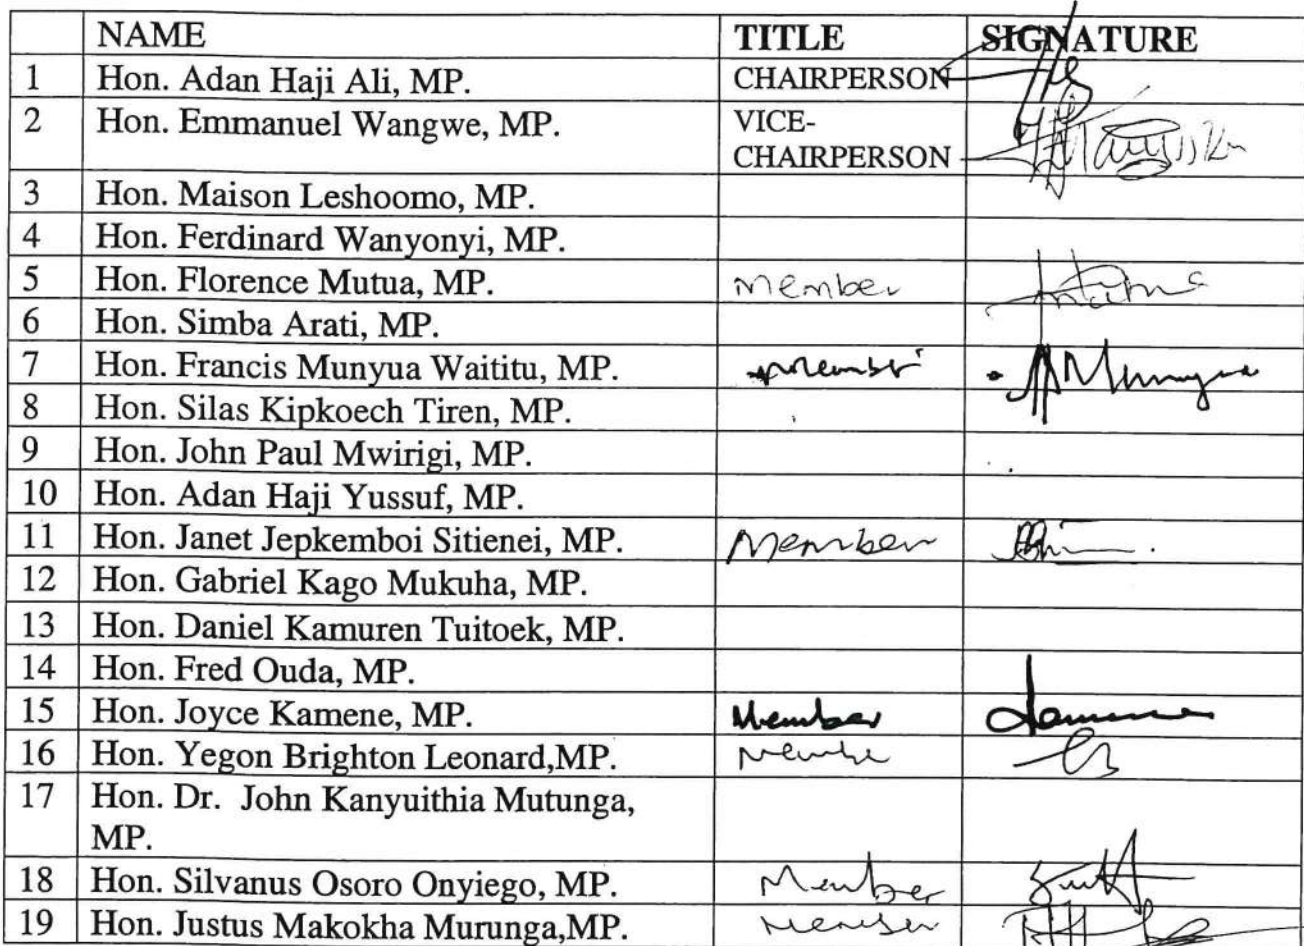 NAME TITLE SIGNATURE
1 Hon. Adan Haji Ali, MP. CHAIRPERSON
2 Hon. Emmanuel Wangwe, MP. VICE-
CHAIRPERSON
3 Hon. Maison Leshoomo, MP.
4 Hon. Ferdinard Wanyonyi, MP.
5 Hon. Florence Mutua, MP. Member
6 Hon. Simba Arati, MP.
7 Hon. Francis Munyua Waititu, MP. Member Munyua
8 Hon. Silas Kipkoech Tiren, MP.
9 Hon. John Paul Mwirigi, MP.
10 Hon. Adan Haji Yussuf, MP.
11 Hon. Janet Jepkemboi Sitienei, MP. Member
12 Hon. Gabriel Kago Mukuha, MP.
13 Hon. Daniel Kamuren Tuitoek, MP.
14 Hon. Fred Ouda, MP.
15 Hon. Joyce Kamene, MP. Member
16 Hon. Yegon Brighton Leonard,MP. Membe
17 Hon. Dr. John Kanyuithia Mutunga,
MP.
18 Hon. Silvanus Osoro Onyiego, MP. Member
19 Hon. Justus Makokha Murunga,MP. Member